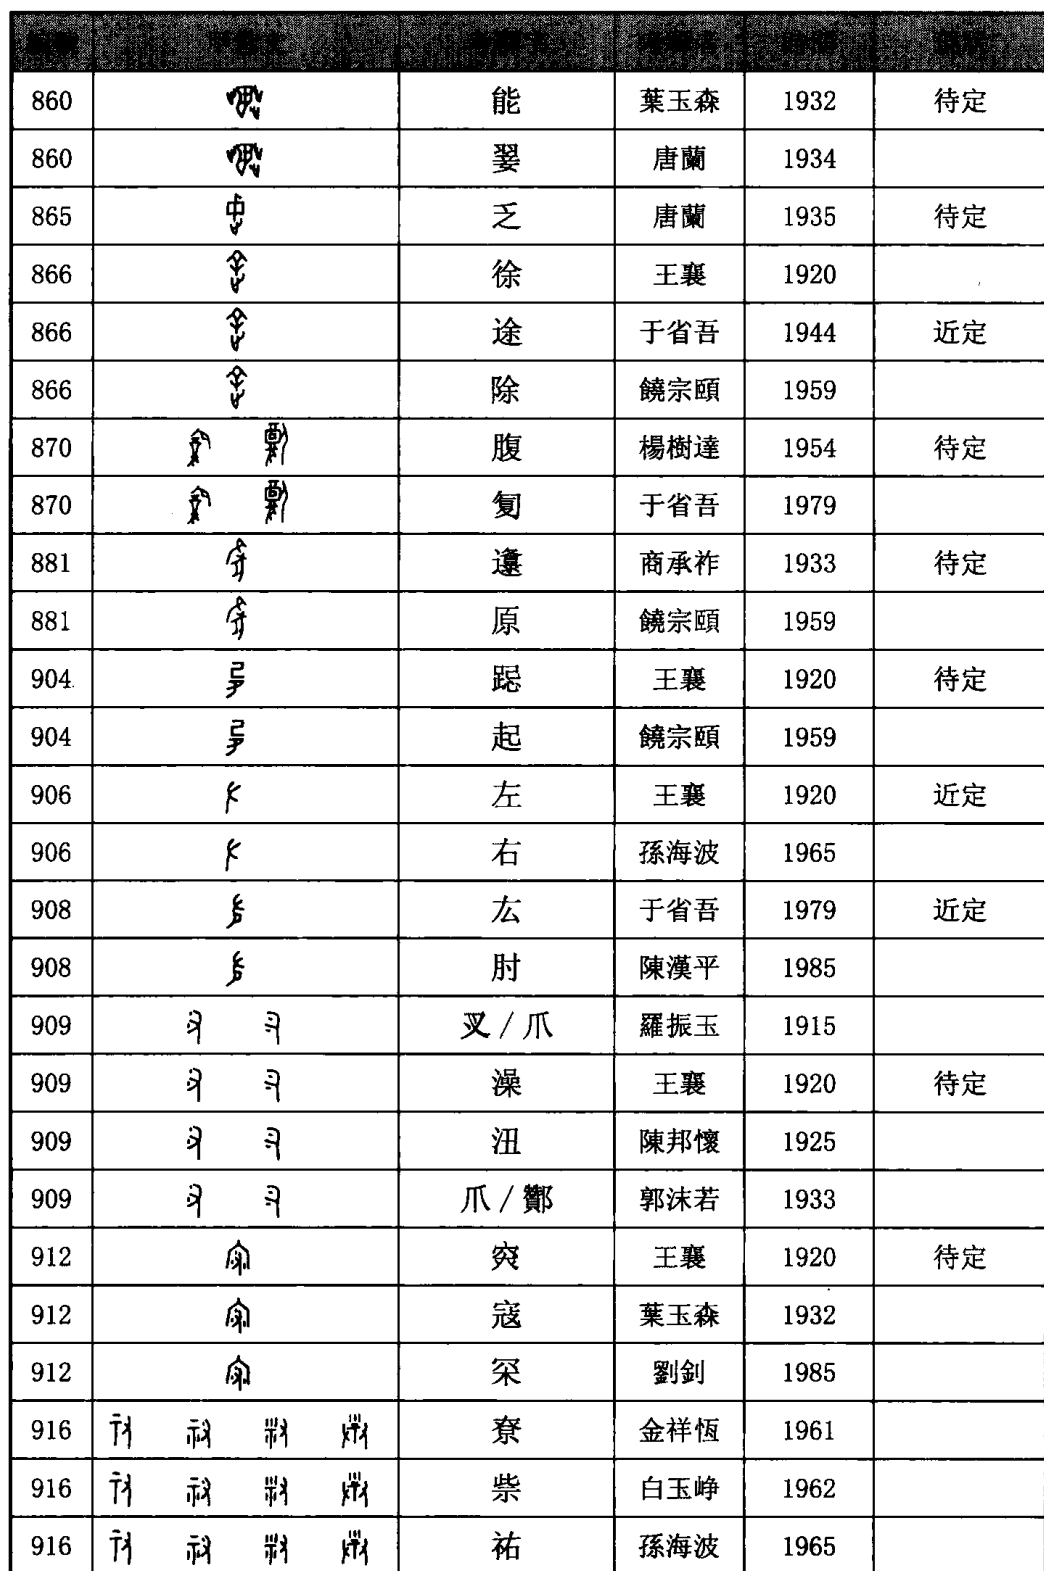 860 能 葉玉森 1932 待定
860 翣 唐蘭 1934
865 乏 唐蘭 1935 待定
866 徐 王襄 1920
866 途 于省吾 1944 近定
866 除 饒宗頤 1959
870 腹 楊樹達 1954 待定
870 匐 于省吾 1979
881 邍 商承祚 1933 待定
881 原 饒宗頤 1959
904 跽 王襄 1920 待定
904 起 饒宗頤 1959
906 左 王襄 1920 近定
906 右 孫海波 1965
908 厷 于省吾 1979 近定
908 肘 陳漢平 1985
909 叉/爪 羅振玉 1915
909 澡 王襄 1920 待定
909 沑 陳邦懷 1925
909 爪/酇 郭沫若 1933
912 王襄 1920 待定
912 寇 葉玉森 1932
912 罙 劉釗 1985
916 尞 金祥恆 1961
916 祡 白玉崢 1962
916 祐 孫海波 1965